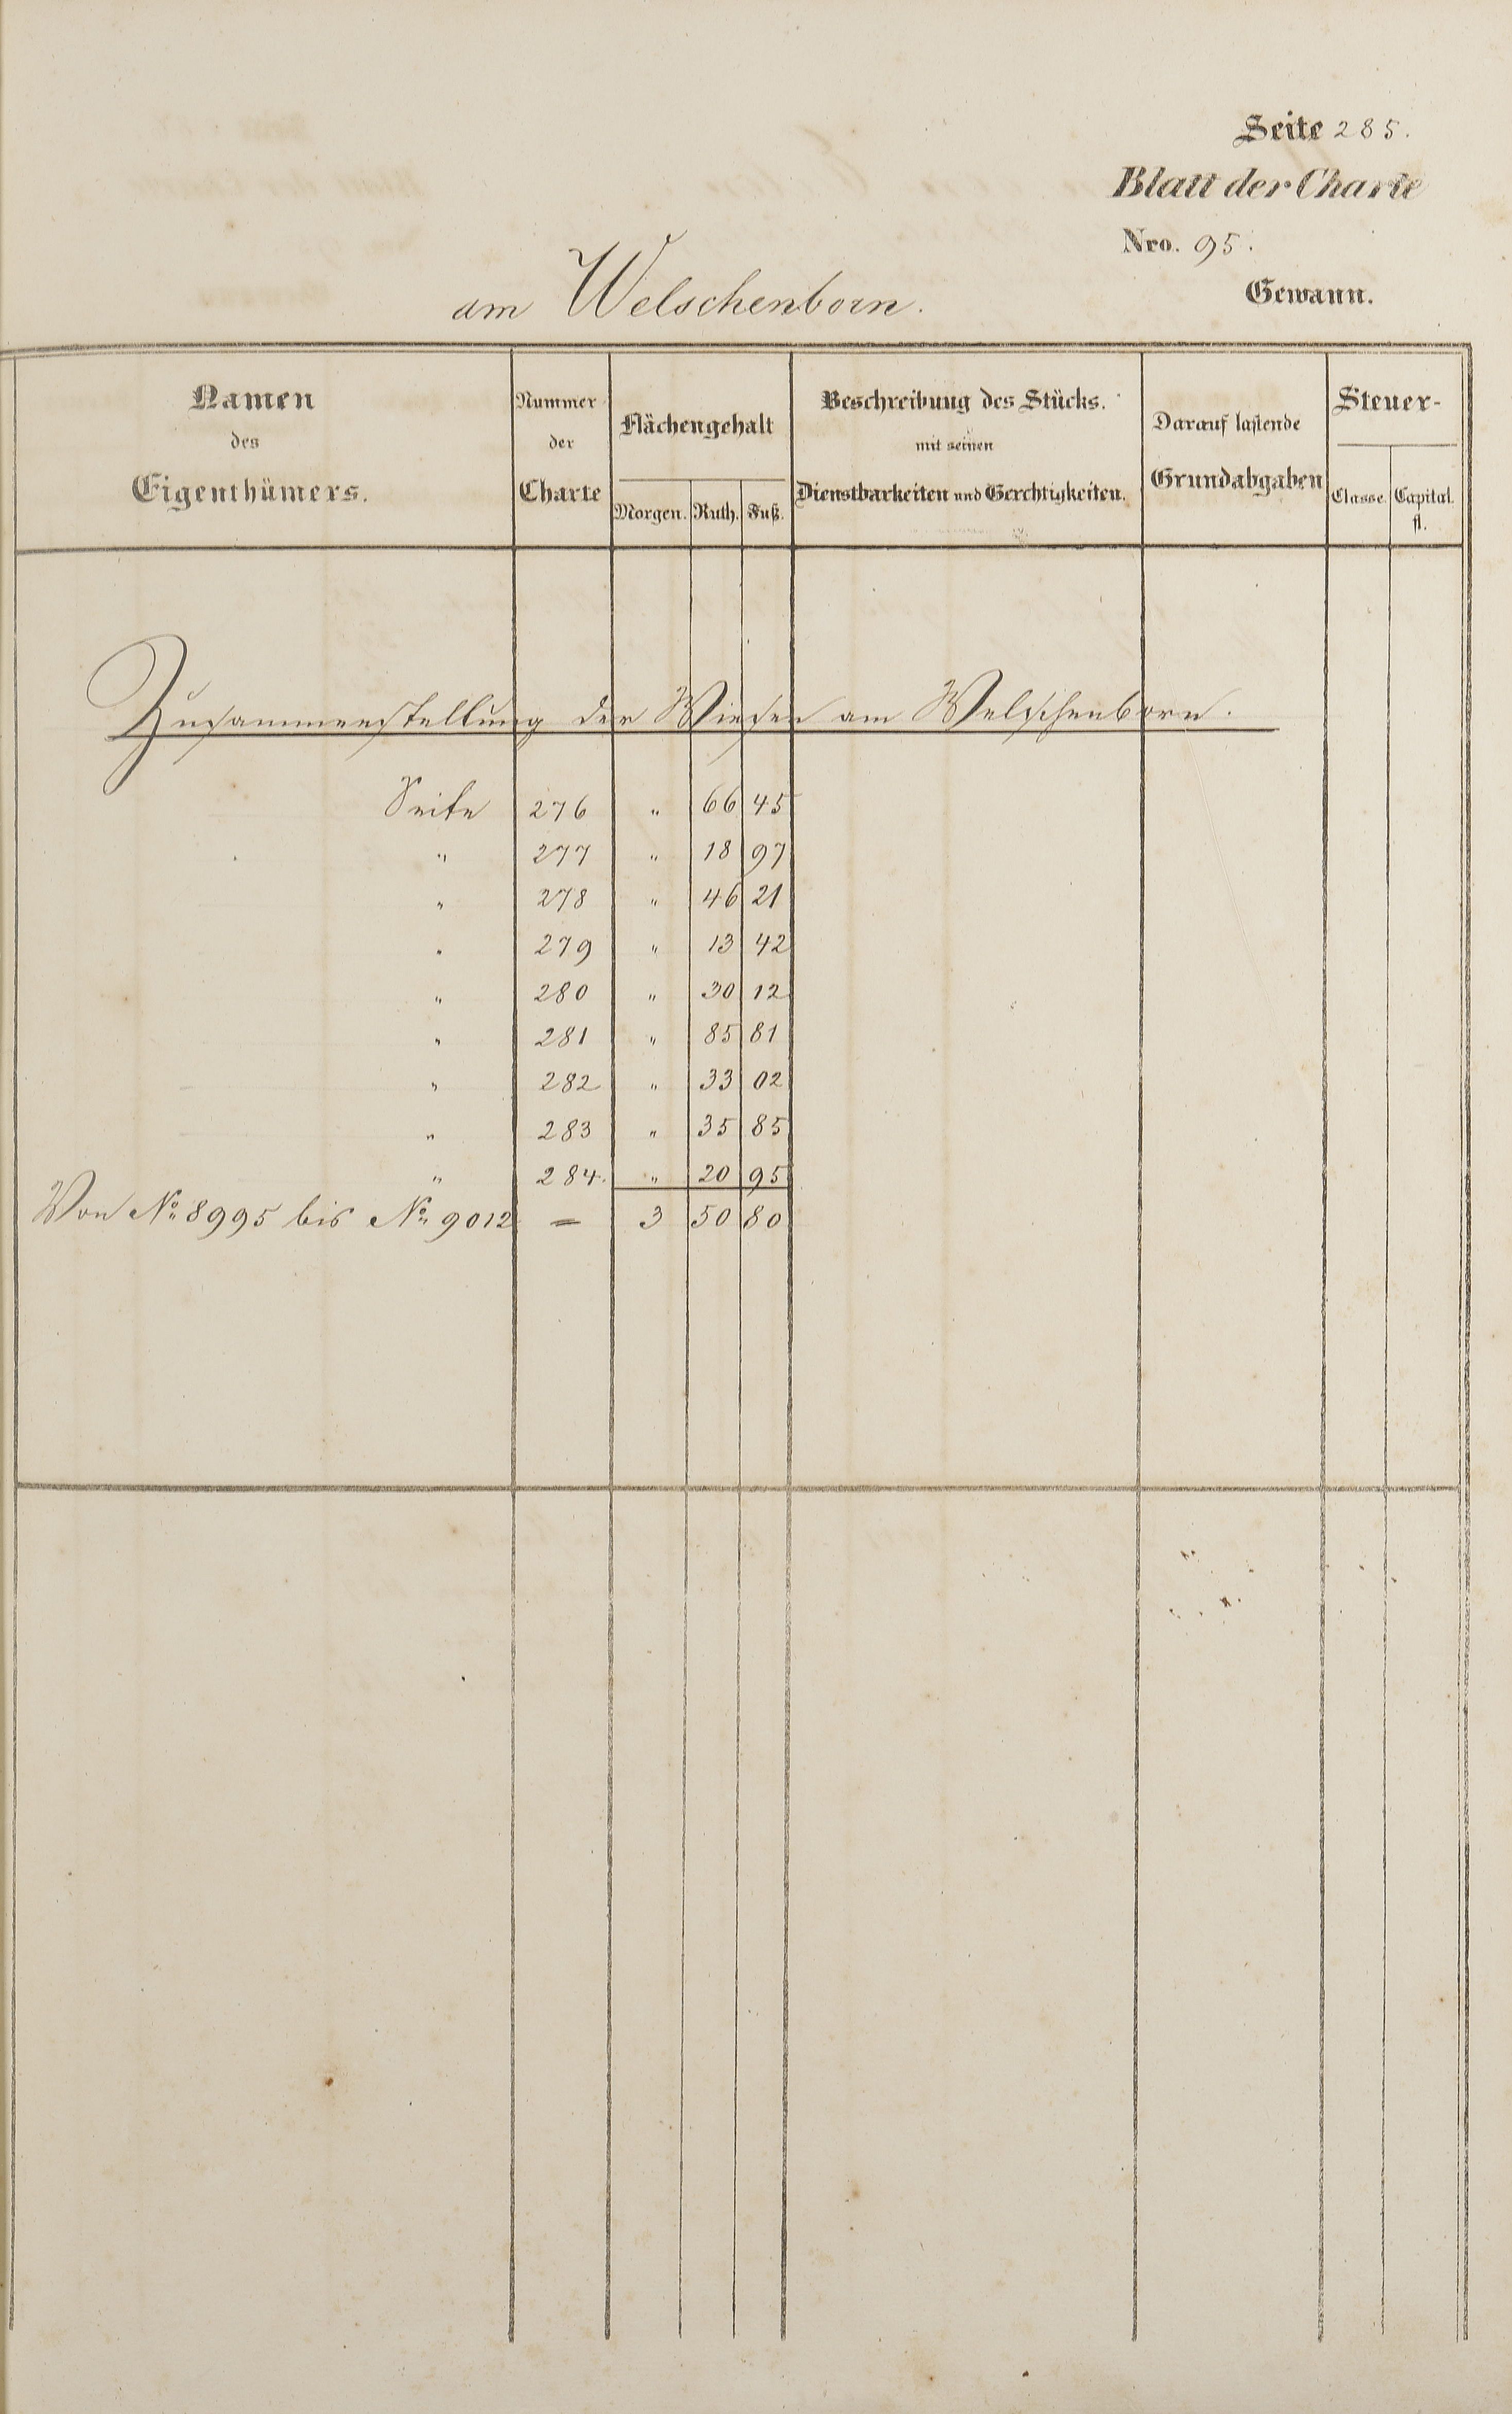 Seite 285.
Blatt der Charte
Nro. 95.
am Welschenborn.
Gewann.
Namen des Eigenthümers.
Nummer der Charte
Flächengehalt
Morgen. Ruth. Fuß.
Beschreibung des Stücks. mit seinen Dienstbarkeiten und Gerechtigkeiten.
Darauf lastende Grundabgaben
Steuer-
Classe. Capital. fl.
Zusammenstellung der Wiesen am Welschenborn.
Seite 276 " 66 45
" 277 " 18 97
" 278 " 46 21
" 279 " 13 42
" 280 " 30 12
" 281 " 85 81
" 282 " 33 02
" 283 " 35 85
" 284. " 20 95
Von No. 8995 bis No. 9012 = 3 50 80